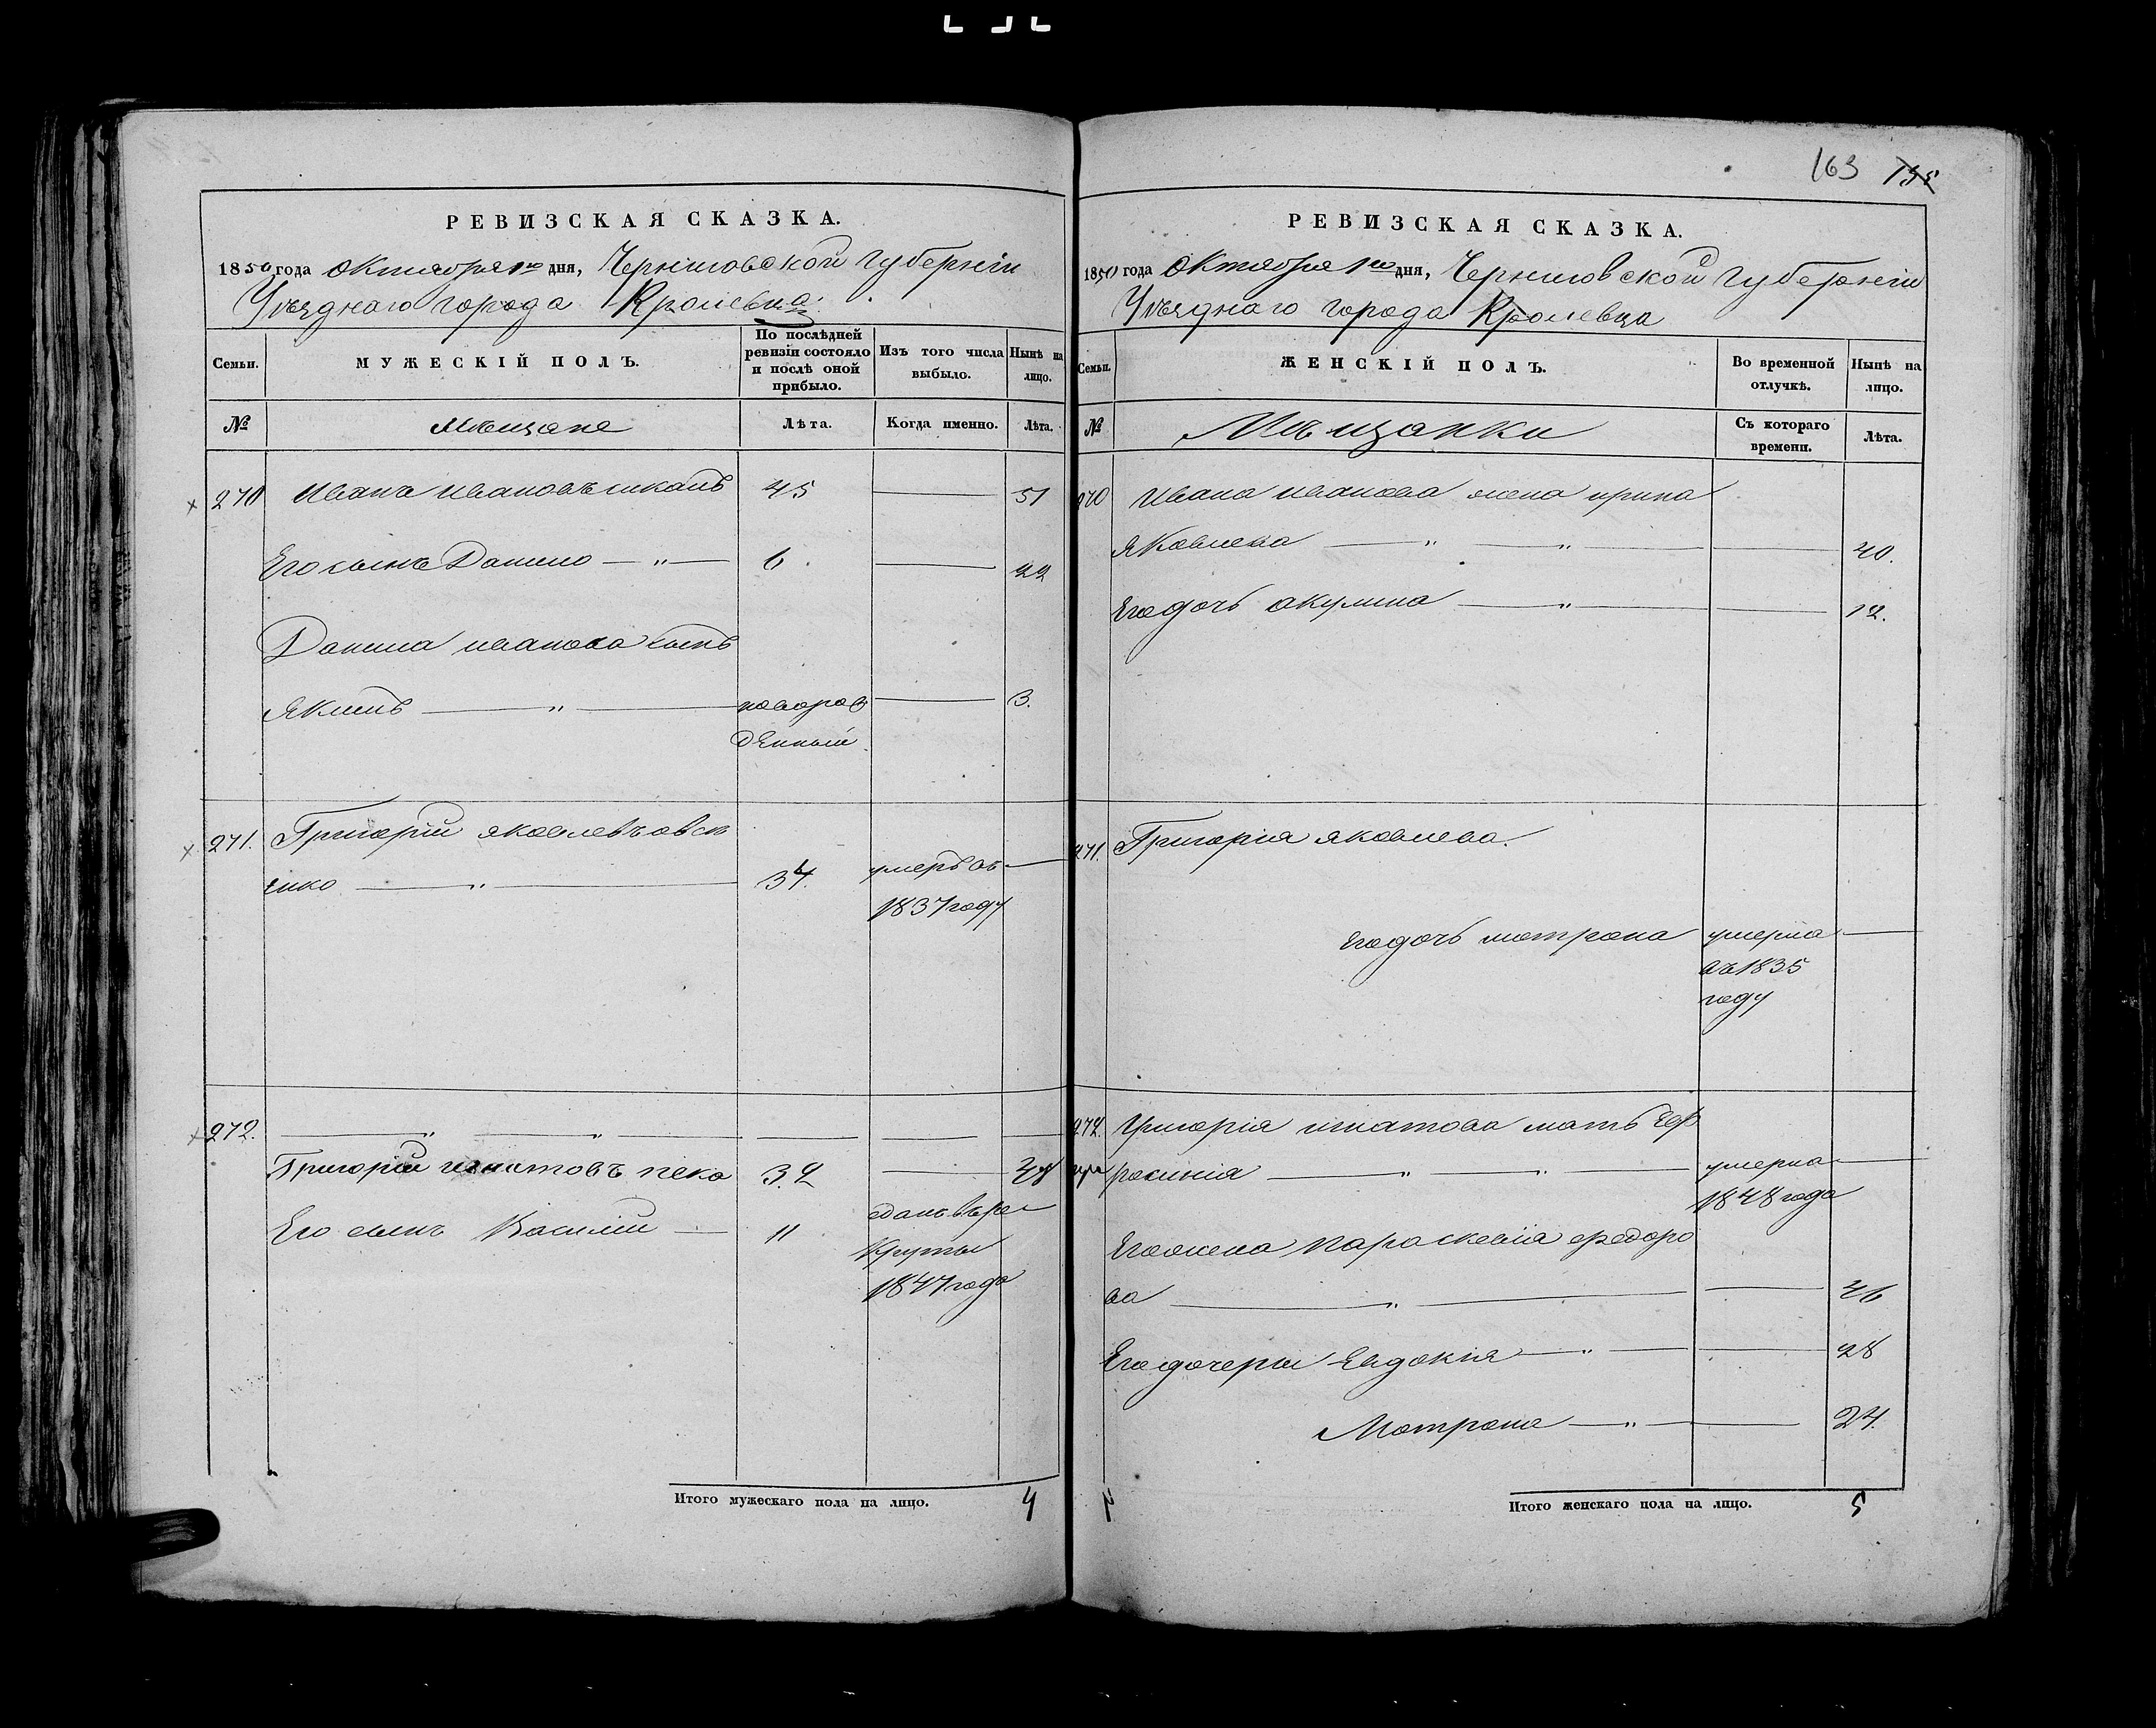 163
РЕВИЗСКАЯ СКАЗКА.
1850 года Октября 1го дня, Черниговской губерніи
Уѣзднаго города Кролевца.
Семьи.
МУЖЕСКІЙ ПОЛЪ.
По послѣдней ревизіи состояло и послѣ оной прибыло.
Изъ того числа выбыло.
Нынѣ на лицо.
№
Мѣщане
Лѣта.
Когда именно.
Лѣта.
270 Иванъ Ивановъ 45 — 51
Его сынъ Данило — „ — 6. — 22
Данила Иванова сынъ
Якимъ — „ — новорож — 3.
денный
271. Григорій Яковлевъ
енко — „ — 34. умеръ въ —
1837 году
272. — „ — „ — — — —
Григорій Игнатовъ 32 — 48
Его сынъ Василій — 11 зданъ въ ре
круты
1847 года
Итого мужескаго пола на лицо. 4
РЕВИЗСКАЯ СКАЗКА.
1850 года Октября 1го дня, Черниговской губерніи
Уѣзднаго города Кролевца
Семьи.
ЖЕНСКІЙ ПОЛЪ.
Во временной отлучкѣ.
Нынѣ на лицо.
№
Мѣщанки
Съ котораго времени.
Лѣта.
270 Ивана Иванова жена Ирина
Яковлева — „ — „ — — 40.
Его дочь Акулина — „ — — 12.
271. Григорія Яковлева.
Его дочь Матрона умерла —
въ 1835
году
272. Григорія Игнатова мать Еф
росинія — „ — „ — умерла —
1848 года
Его жена Параскевія Федоро
ва — „ — — 46
Его дочери Евдокія — „ — — 28
Матрона — „ — — 24.
Итого женскаго пола на лицо. 5